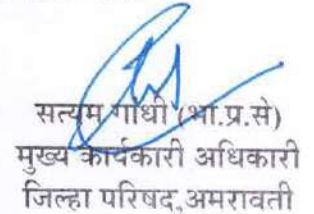 सत्यम गांधी (भा.प्र.से)
मुख्य कार्यकारी अधिकारी
जिल्हा परिषद,अमरावती